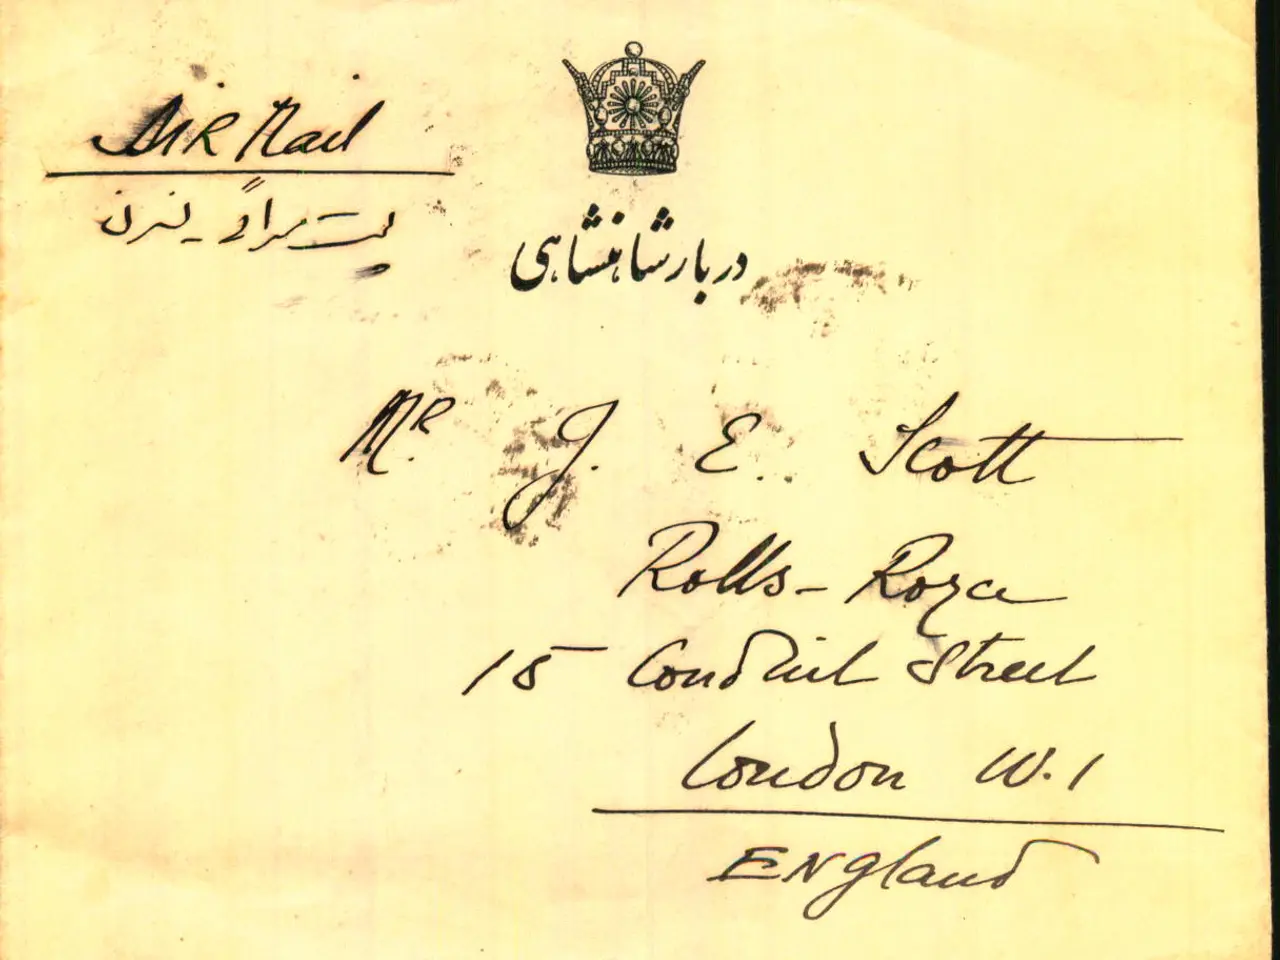 AIR Mail
پست هوائی - لندن
دربار شاهنشاهی
MR. J. E. Scott
Rolls-Royce
15 Conduit Street
London W.1
ENGland